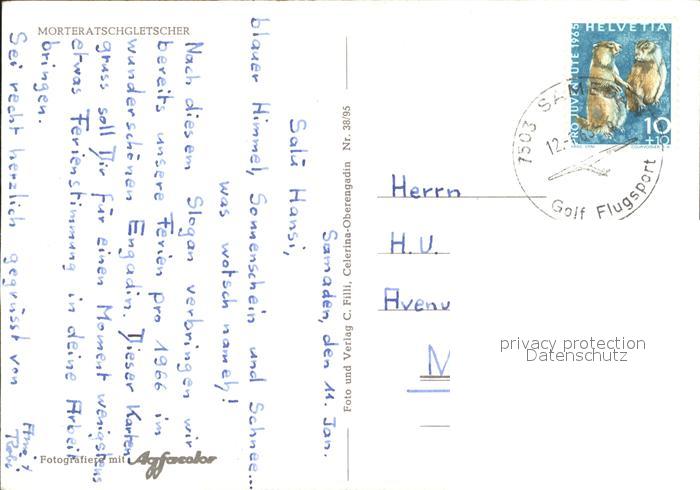 MORTERATSCHGLETSCHER
Samaden, den 11. Jan.
Salü Hansi,
blauer Himmel, Sonnenschein und Schnee...
was wotsch nameh!
Nach diesem Slogan verbringen wir
bereits unsere Ferien pro 1966 im
wunderschönen Engadin. Dieser Karten-
gruss soll Dir für einen Moment wenigstens
etwas Ferienstimmung in deine Arbeit
bringen.
Sei recht herzlich gegrüsst von
Fotografiere mit Agfacolor
Foto und Verlag C. Filli, Celerina-Oberengadin Nr. 38/95
HELVETIA
PRO JUVENTUTE 1965
10
+10
7503 SAME
12.
Golf Flugsport
Herrn
H.U.
Avenu
M
privacy protection
Datenschutz